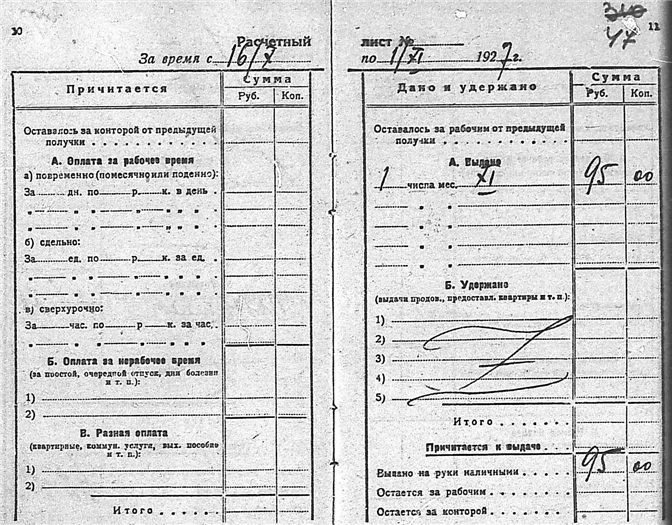 10
Расчетный
За время с 16/X
Причитается
Сумма
Руб. Коп.
Оставалось за конторой от предыдущей
получки
А. Оплата за рабочее время
а) повременно (помесячно или поденно):
За дн. по р. к. в день
" " " " " " "
" " " " " " "
б) сдельно:
За ед. по р. к. за ед.
" " " " " " "
" " " " " " "
в) сверхурочно:
За час. по р. к. за час.
" " " " " " "
Б. Оплата за нерабочее время
(за простой, очередной отпуск, дни болезни
и т. п.):
1)
2)
В. Разная оплата
(квартирные, коммун. услуги, вых. пособие
и т. п.):
1)
2)
Итого
47
11
лист №
по 1/XI 1927 г.
Дано и удержано
Сумма
Руб. Коп.
Оставалось за рабочим от предыдущей
получки
А. Выдано
1 числа мес. XI 95 00
" "
" "
" "
" "
Б. Удержано
(выдачи продов., предоставл. квартиры и т. п.):
1)
2)
3)
4)
5)
Итого
Причитается к выдаче
Выдано на руки наличными 95 00
Остается за рабочим
Остается за конторой